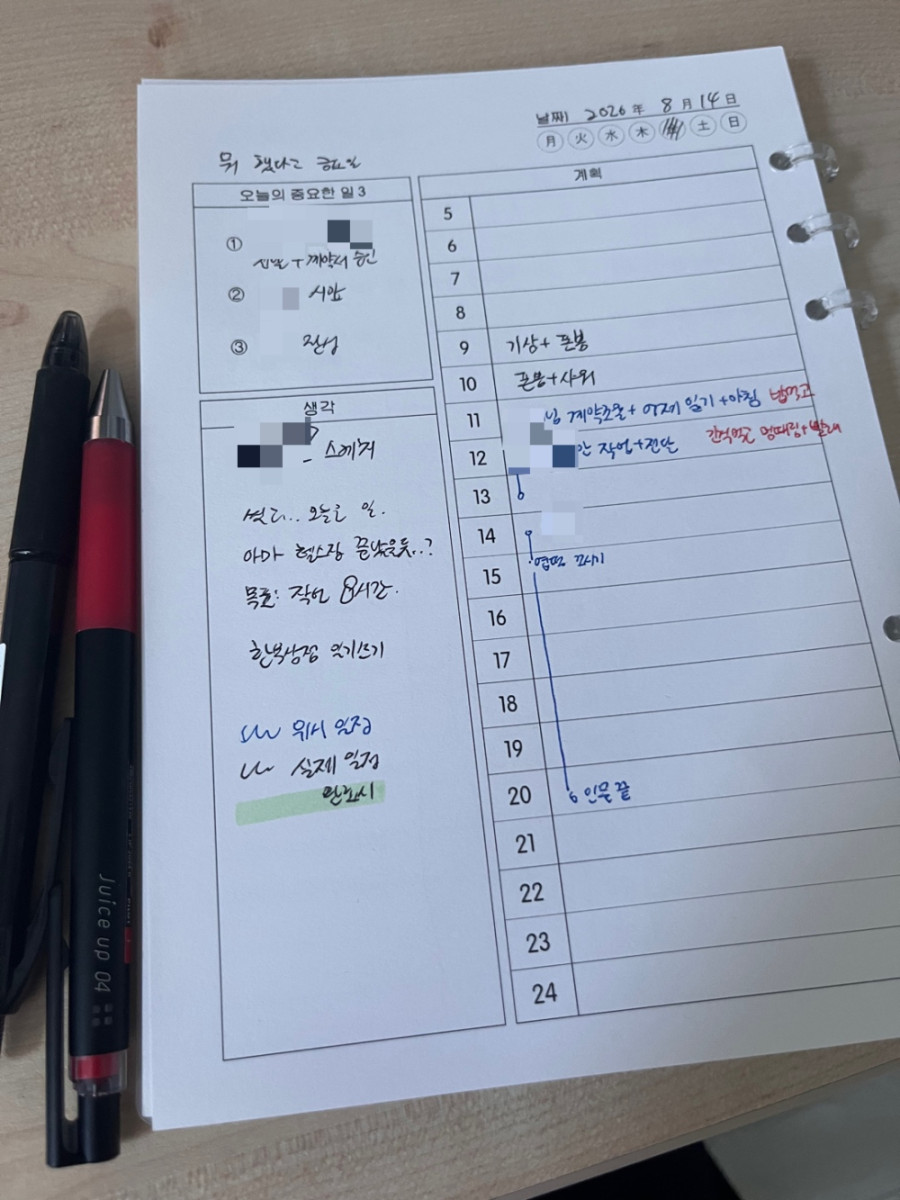 날짜 2026 年 8 月 14 日
月 火 水 木 土 日
뭐 했다고 금요일
오늘의 중요한 일 3
①
+ 계약서 승인
② 시안
③ 전성
생각
스케치
썼다.. 오늘은 일.
아마 헬스장 끝났을듯..?
목표: 작업 8시간.
한복상점 일기쓰기
위시 일정
실제 일정
완료시
계획
5
6
7
8
9 기상+폰봉
10 폰봉+샤워
11 님 계약조율+어제 일기+아침 냅먹고
12 안 작업+전달 간식먹고 멍때림+빨래
13
14
15 엽떡 꼬시기
16
17
18
19
20 인물 끝
21
22
23
24
Juice up 04